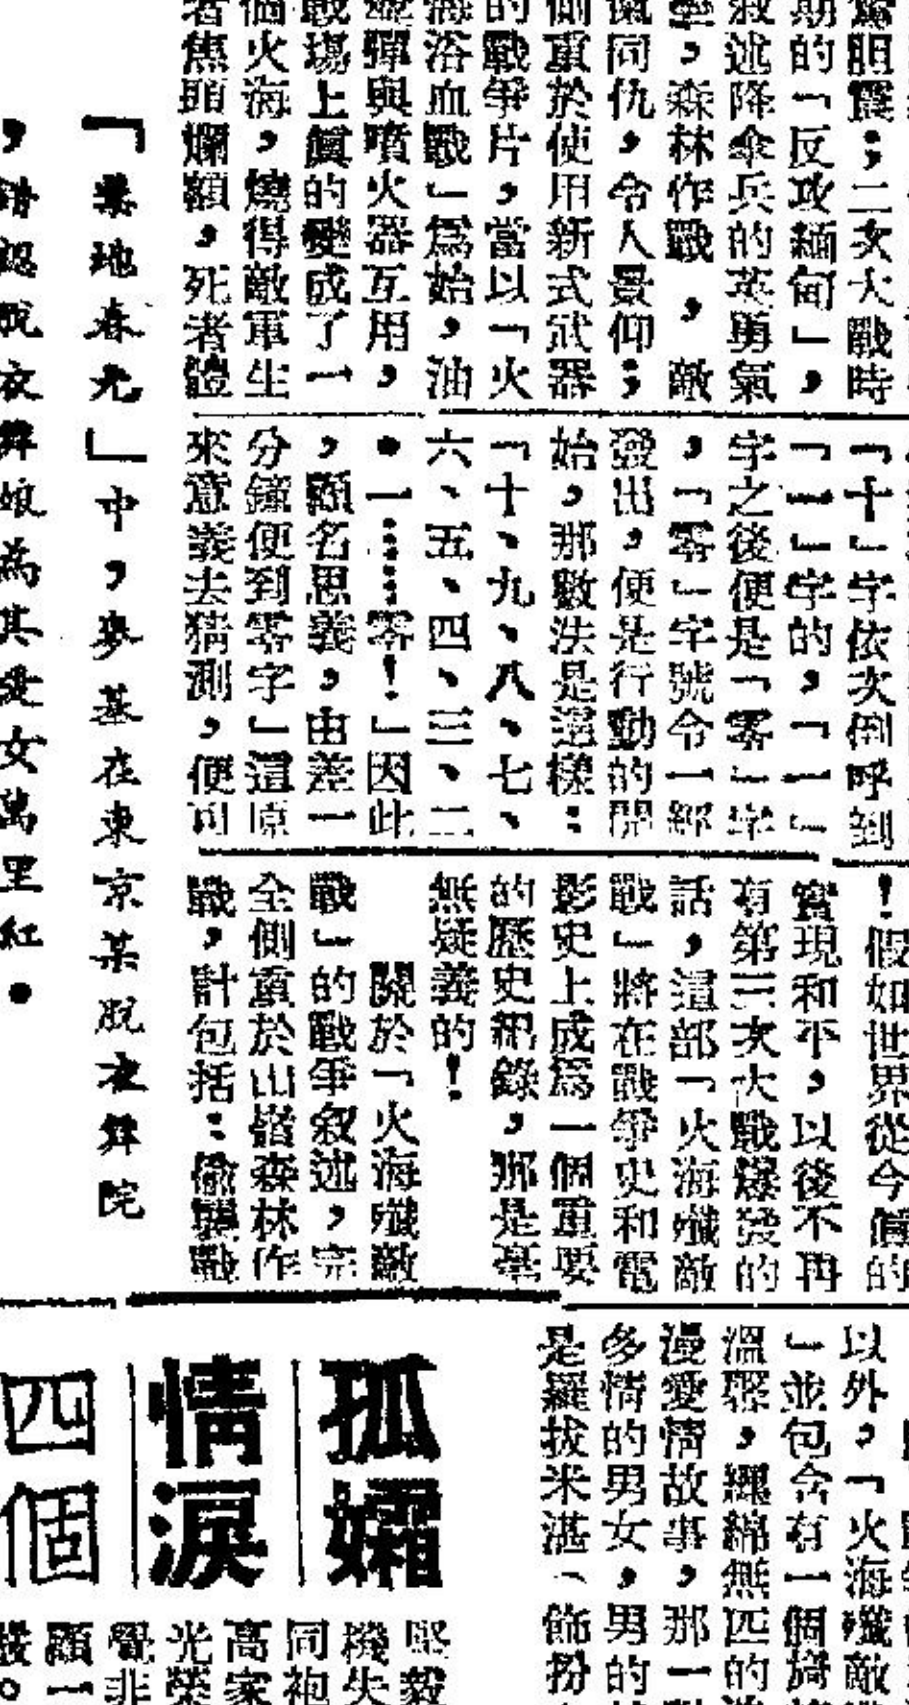 驚胆震；二次大戰時
期的「反攻緬甸」，
敘述降傘兵的英勇氣
，森林作戰，敵
同仇，令人景仰；
側重於使用新式武器
的戰爭片，當以「火
海浴血戰」爲始，油
彈與噴火器互用，
戰場上眞的變成了一
個火海，燒得敵軍生
者焦頭爛額，死者體
「十」字依次倒呼到
「一」字的，「一」
字之後便是「零」字
，「零」字號令一經
發出，便是行動的開
始，那數法是這樣：
「十、九、八、七、
六、五、四、三、二
・一……零！」因此
，顧名思義，由差一
分鐘便到零字」這原
來意義去猜測，便可
！假如世界從今值的
實現和平，以後不再
有第三次大戰爆發的
話，這部「火海殲敵
戰」將在戰爭史和電
影史上成爲一個重要
的歷史紀錄，那是毫
無疑義的！
關於「火海殲敵
戰」的戰爭敘述，完
全側重於山嶺森林作
戰，計包括：偷襲戰
「禁地春光」中，麥基在東京某脫衣舞院
，錯認脫衣舞娘為其愛女萬里紅・
以外，「火海殲敵
」並包含有一個旖
溫馨，纏綿無匹的
漫愛情故事，那一
多情的男女，男的
是羅拔米湛（飾扮
孤孀
情淚
四個
堅毅
機失
同袍
高家
光榮
覺非
顧一